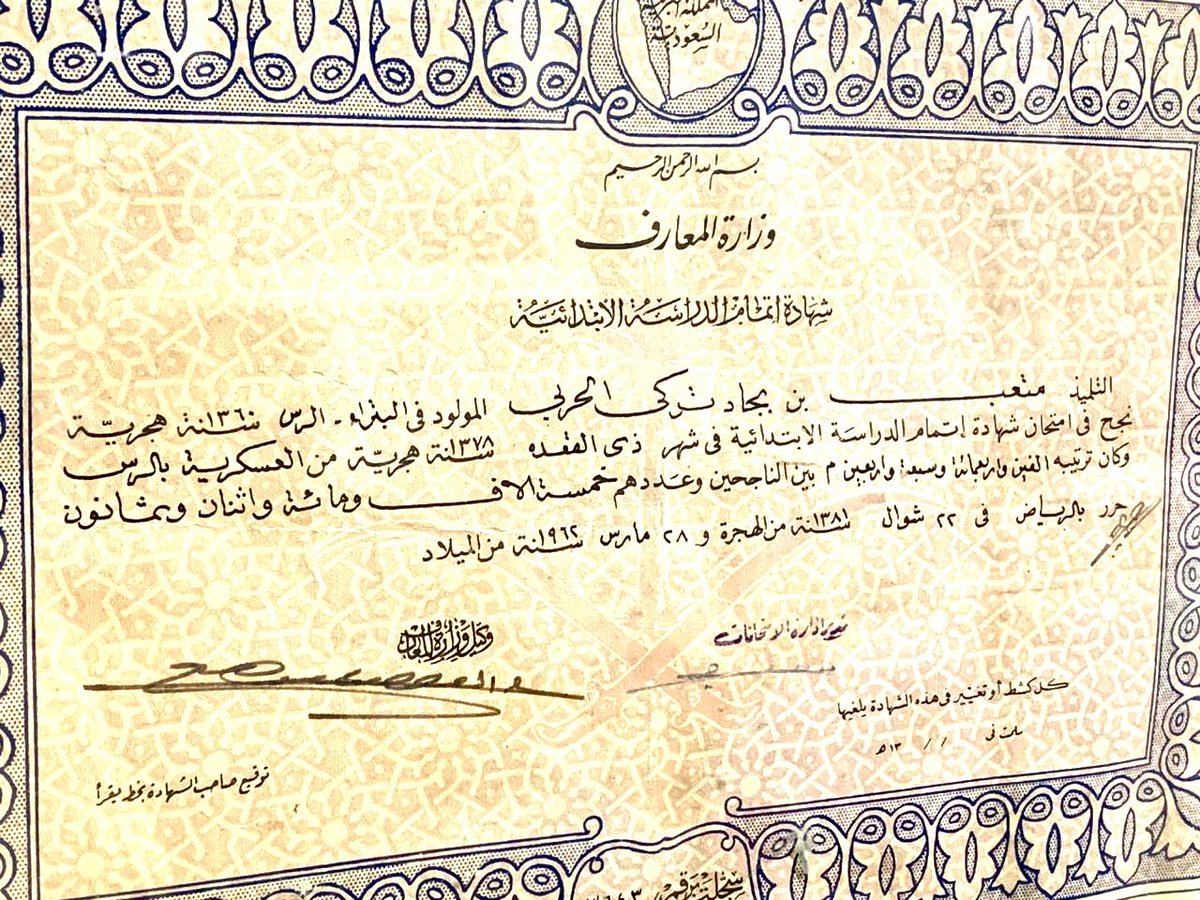 المملكة العربية
السعودية
بسم الله الرحمن الرحيم
وزارة المعارف
شهادة اتمام الدراسة الابتدائية
التلميذ متعب بن بجاد تركي الحربي المولود في البتراء - الرس سنة ١٣٦٠ هجرية
نجح في امتحان شهادة إتمام الدراسة الابتدائية في شهر ذي القعده سنة ١٣٧٨ هجرية من العسكرية بالرس
وكان ترتيبه الفين واربعمائة وسبعة واربعين م بين الناجحين وعددهم خمسة الاف ومائة واثنان وثمانون
حرر بالرياض في ٢٢ شوال سنة ١٣٨١ من الهجرة و ٢٨ مارس سنة ١٩٦٢ من الميلاد
مدير ادارة الامتحانات
وكيل وزارة المعارف
كل كشط أو تغيير في هذه الشهادة يلغيها
سلمت في / / ١٣ هـ
توقيع صاحب الشهادة بخط يقرأ
سجلت برقم